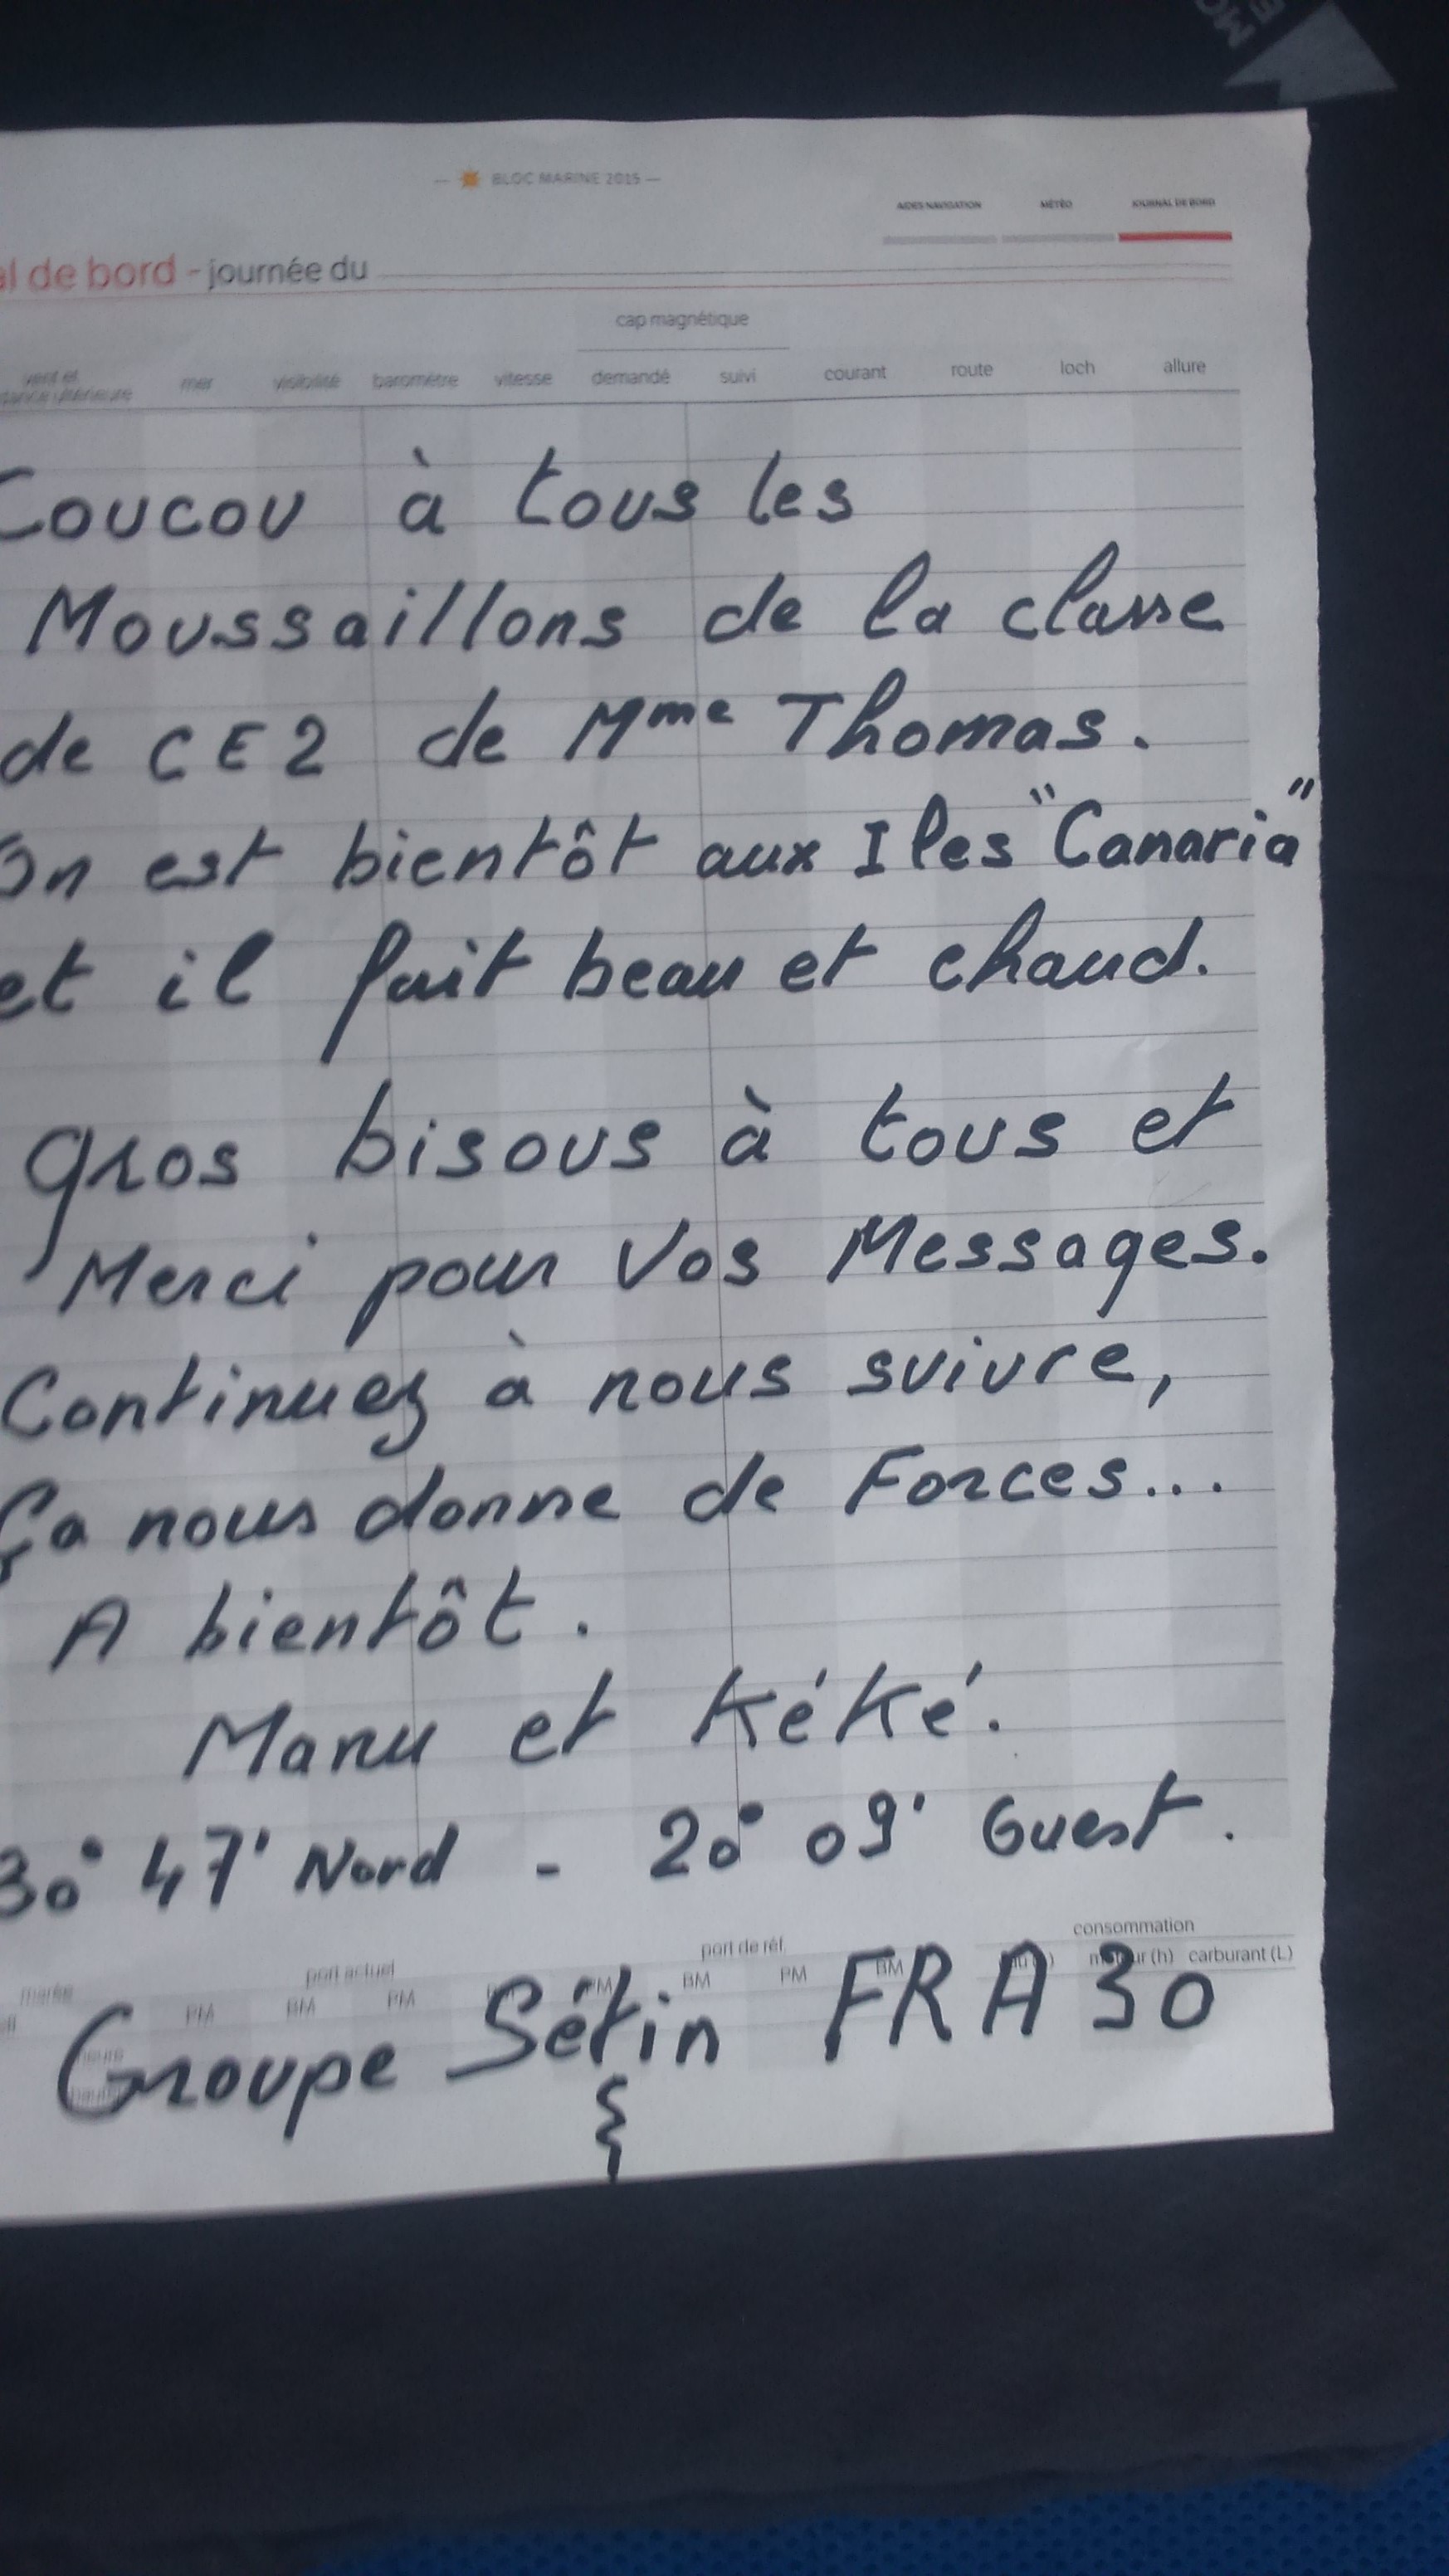 — BLOC MARINE 2015 —
AIDES NAVIGATION MÉTÉO JOURNAL DE BORD
al de bord - journée du
cap magnétique
vent et mer visibilité baromètre vitesse demandé suivi courant route loch allure
Coucou à tous les
Moussaillons de la classe
de CE2 de Mme Thomas.
On est bientôt aux Iles "Canaria"
et il fait beau et chaud.
gros bisous à tous et
Merci pour Vos Messages.
Continuez à nous suivre,
Ça nous donne de Forces...
A bientôt.
Manu et Kéké.
30° 47' Nord - 20° 09' Ouest.
consommation
port actuel port de réf. carburant (L)
marée PM BM PM PM BM PM BM
Groupe Sétin FRA 30